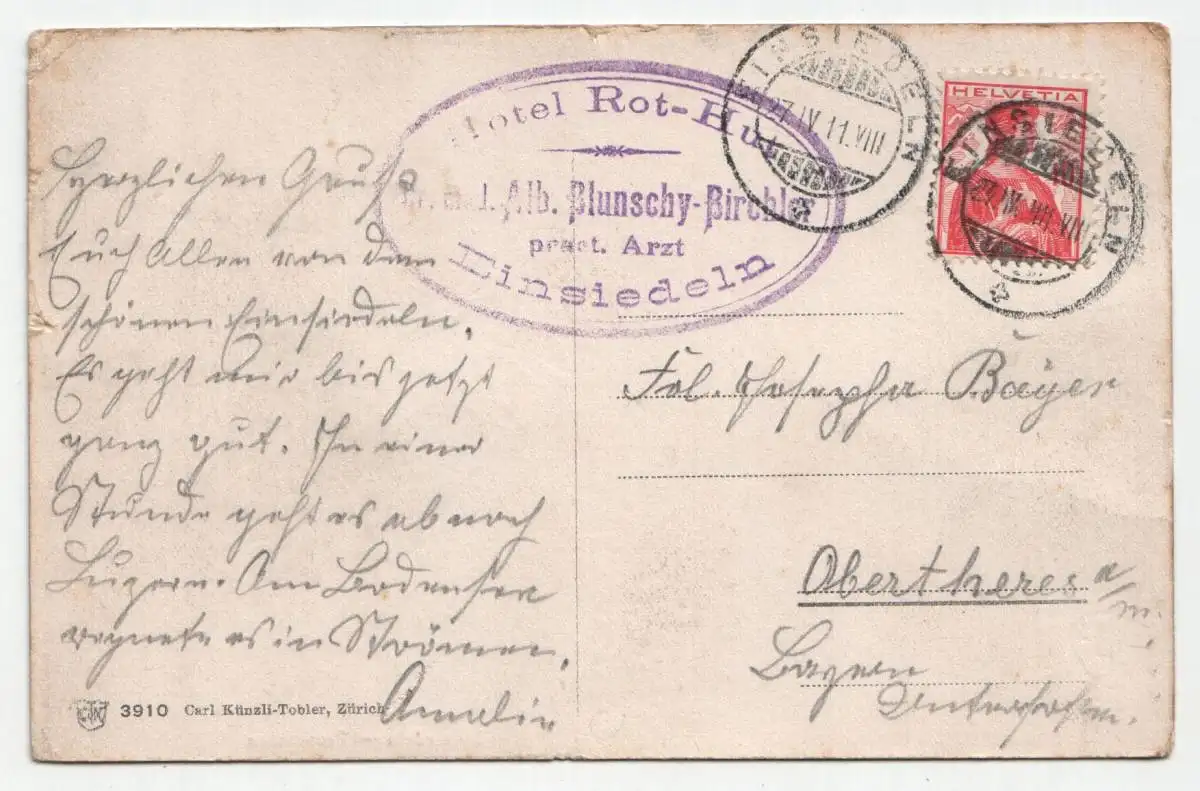 Herzlichen Gruß
Euch Allen von dem
schönen Einsiedeln.
Es geht mir bis jetzt
ganz gut. In einer
Stunde geht es ab nach
Luzern. Am Bodensee
regnete es in Strömen.
Amalie
3910 Carl Künzli-Tobler, Zürich
Hotel Rot-Hut
Alb. Blunschy-Birchler
pract. Arzt
Einsiedeln
EINSIEDELN
27.IV.11.VIII
HELVETIA
EINSIEDELN
27.IV.11.VIII
Frl. Josepha Bayer
Obertheres a/m.
Bayern
Unterfranken.